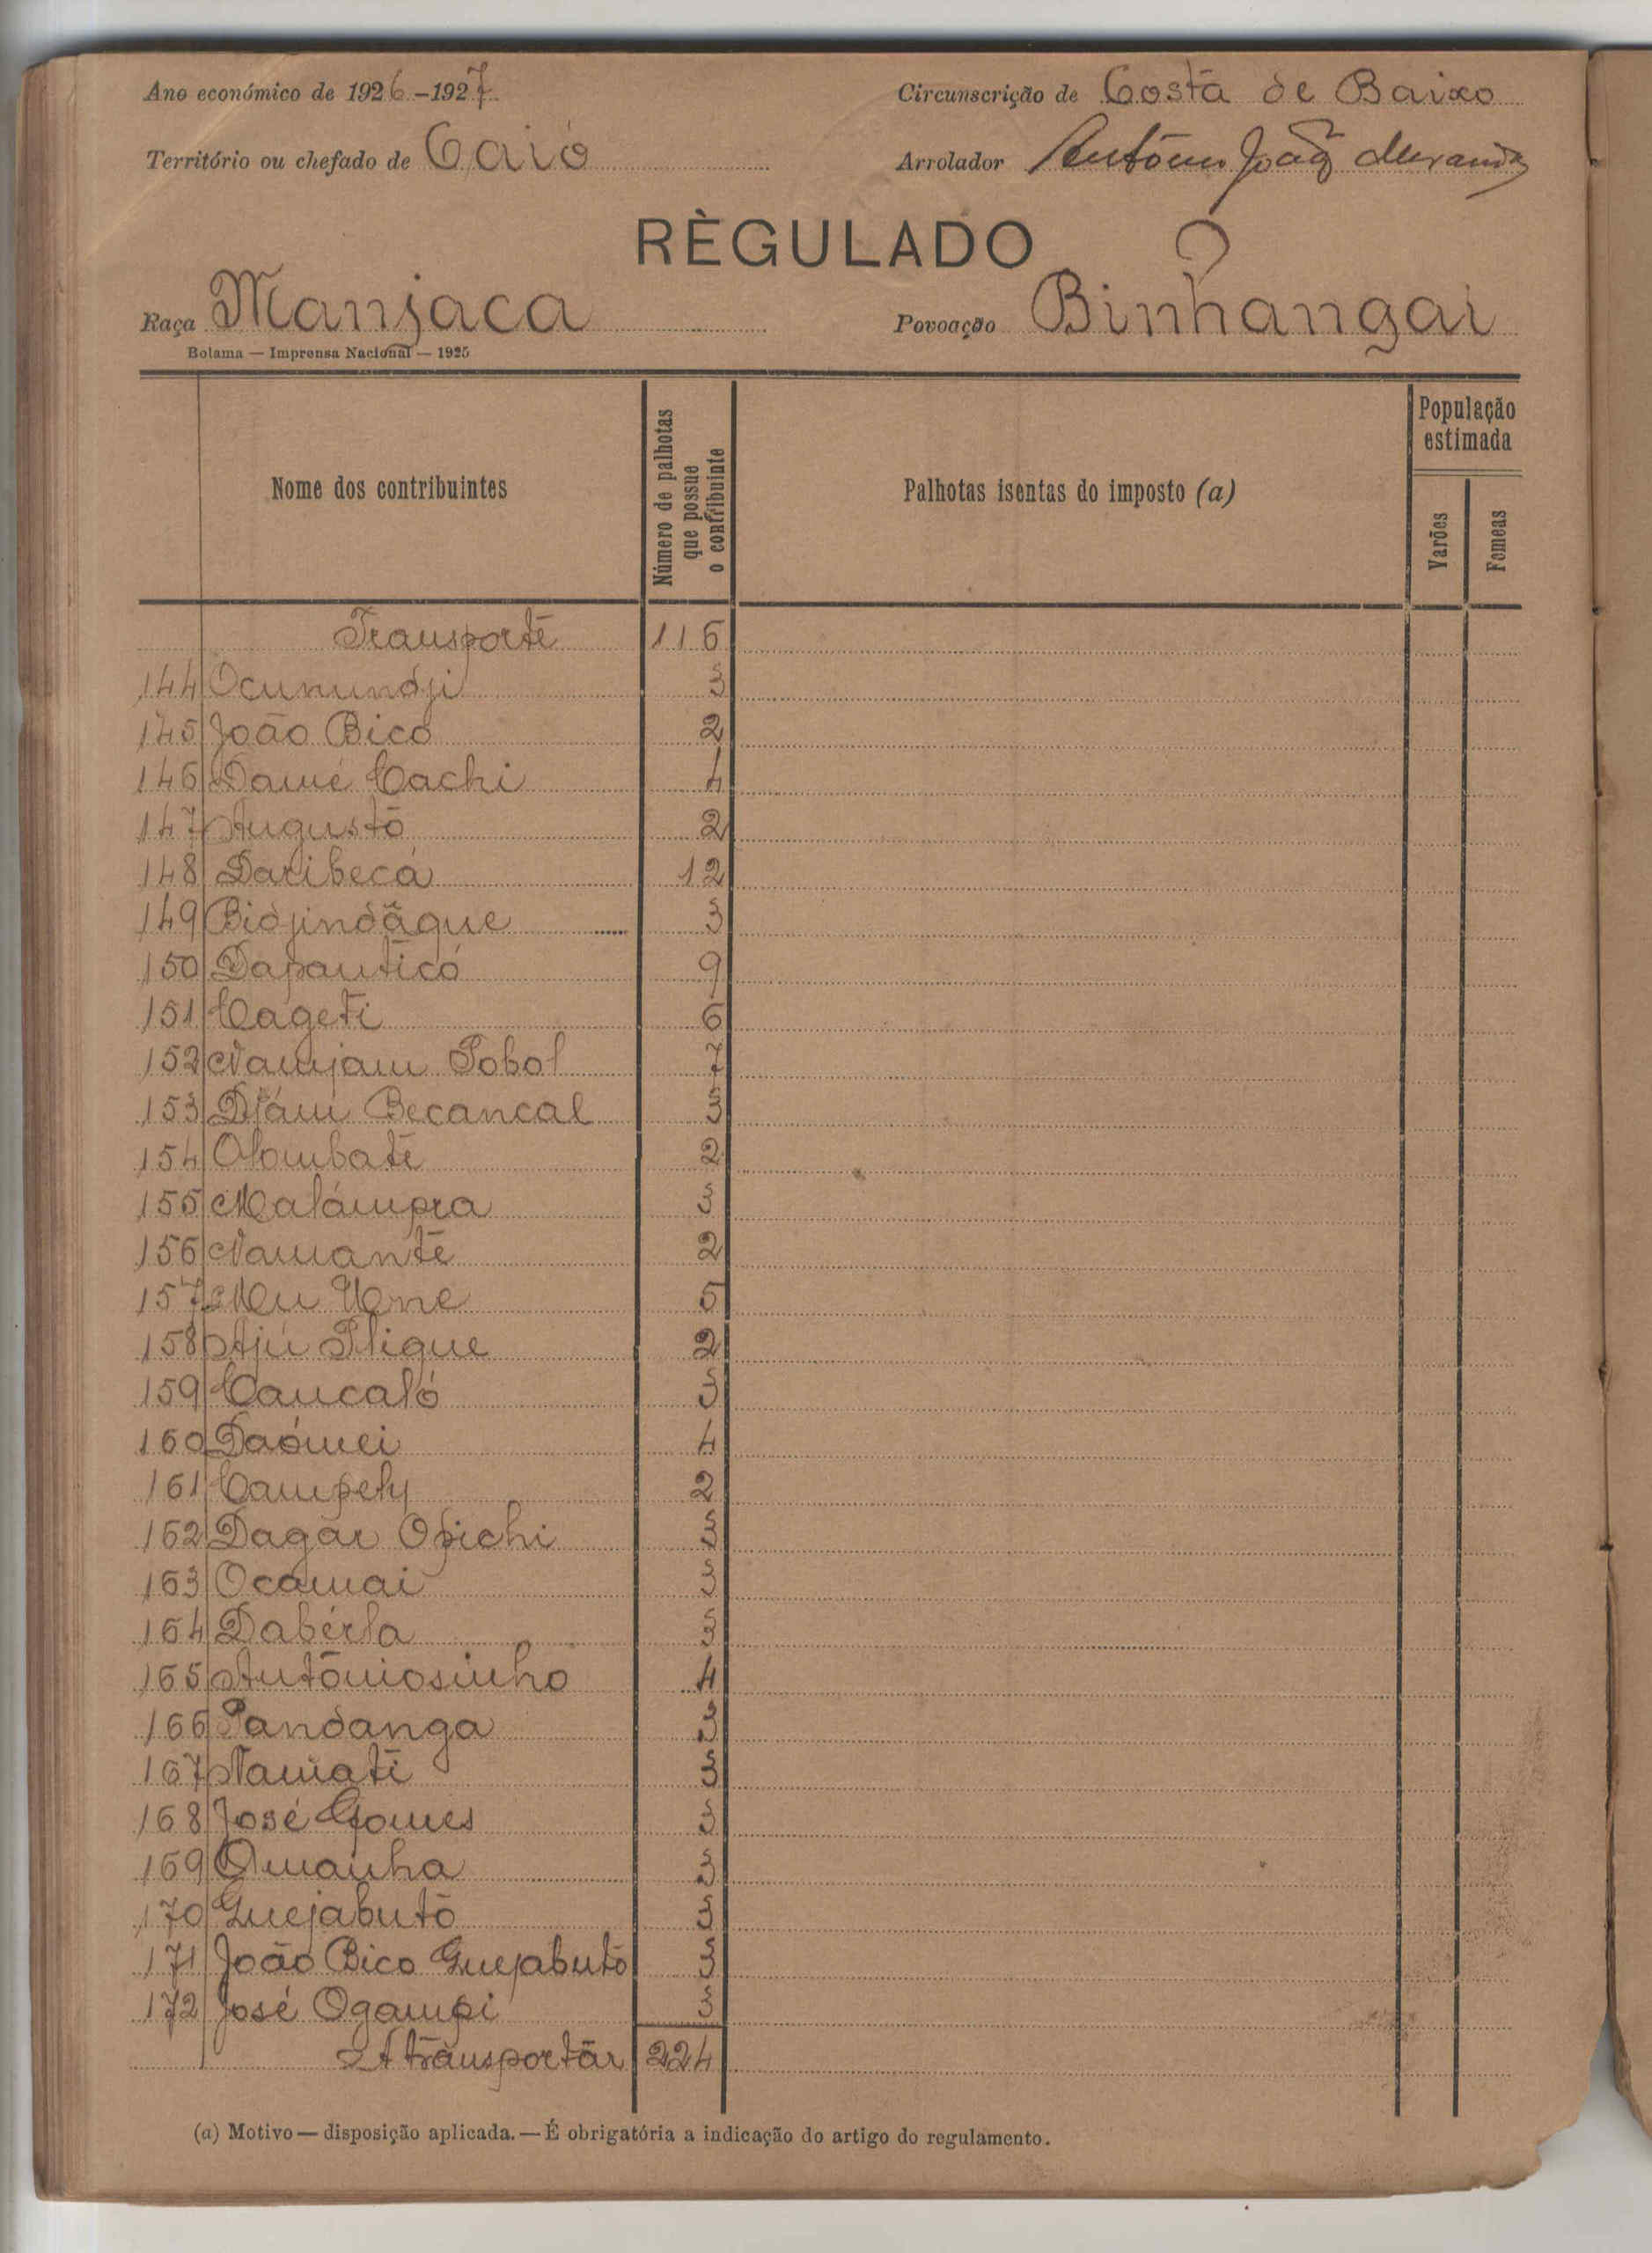 Ano económico de 1926-1927 Circunscrição de Costa de Baixo
Território ou chefado de Caió Arrolador António João Miranda
RÈGULADO
?
Raça Manjaca Povoação Binhangai
Bolama — Imprensa Nacional — 1925
Nome dos contribuintes Número de palhotas que possue o contribuinte Palhotas isentas do imposto (a) População estimada Varões Femeas
Transporte 116
144 Ocunundji 3
145 João Bico 2
146 Damé Cachi 4
147 Augusto 2
148 Daribecá 12
149 Bidjindãque 3
150 Dapanticó 9
151 Cageti 6
152 Namjam Pobol 7
153 Djám Becancal 3
154 Olombate 2
155 Malámpra 3
156 Namante 2
157 Mu Une 5
158 Ajú Plique 2
159 Caucaló 3
160 Daómei 4
161 Campely 2
162 Dagar Opichi 3
163 Ocamai 3
164 Dabérla 3
165 Antóniosinho 4
166 Pandanga 3
167 Namati 3
168 José Gomes 3
169 Omanha 3
170 Guejabutó 3
171 João Bico Guejabutó 3
172 José Ogampi 3
A transportar 224
(a) Motivo — disposição aplicada. — É obrigatória a indicação do artigo do regulamento.